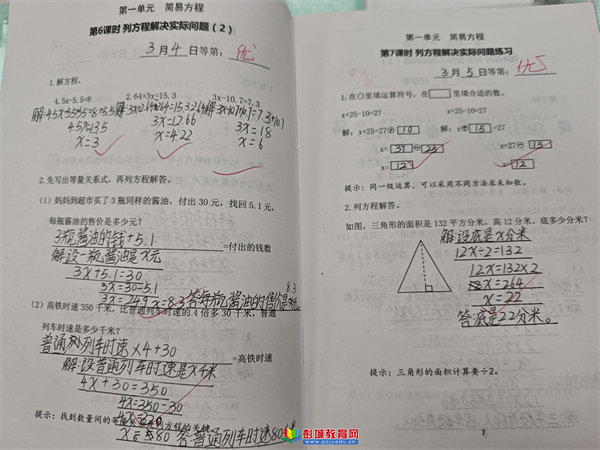 第一单元 简易方程
第6课时 列方程解决实际问题（2）
3月4日等第：优
1.解方程。
4.5x-5.5=8 2.64+3x=15.3 3x-10.7=7.3
4.5x=13.5 3x=12.66 3x=18
x=3 x=4.22 x=6
2.先写出等量关系式，再列方程解答。
（1）妈妈到超市买了3瓶同样的酱油，付出30元，找回5.1元，
每瓶酱油的售价是多少元？
3瓶酱油的钱+5.1=付出的钱数
解设一瓶酱油是x元
3x+5.1=30
3x=30-5.1
3x=24.9 x=8.3 答每瓶酱油的售价是8.3元
（2）高铁时速350千米，比普通列车时速的4倍多30千米，普通
列车时速是多少千米？
普通列车时速×4+30=高铁时速
解：设普通列车时速是x千米
4x+30=350
4x=350-30
4x=320
x=80 答普通列车时速80千米
提示：找到数量间的等
第一单元 简易方程
第7课时 列方程解决实际问题练习
3月5日等第：优
1.在○里填运算符号，在□里填合适的数。
x+25-10=27 x+25-10=27
解：x+25=27+10 解：x+15=27
x=37-25 x=27-15
x=12 x=12
提示：同一级运算，可以采用不同方法求未知数。
2.列方程解答。
如图，三角形的面积是132平方分米，高12分米，底多少分米？
解设底是x分米
12x÷2=132
12x=132×2
x=22
答底是22分米。
提示：三角形的面积计算要÷2。
7
彭城教育网
www.pcjyedu.cn